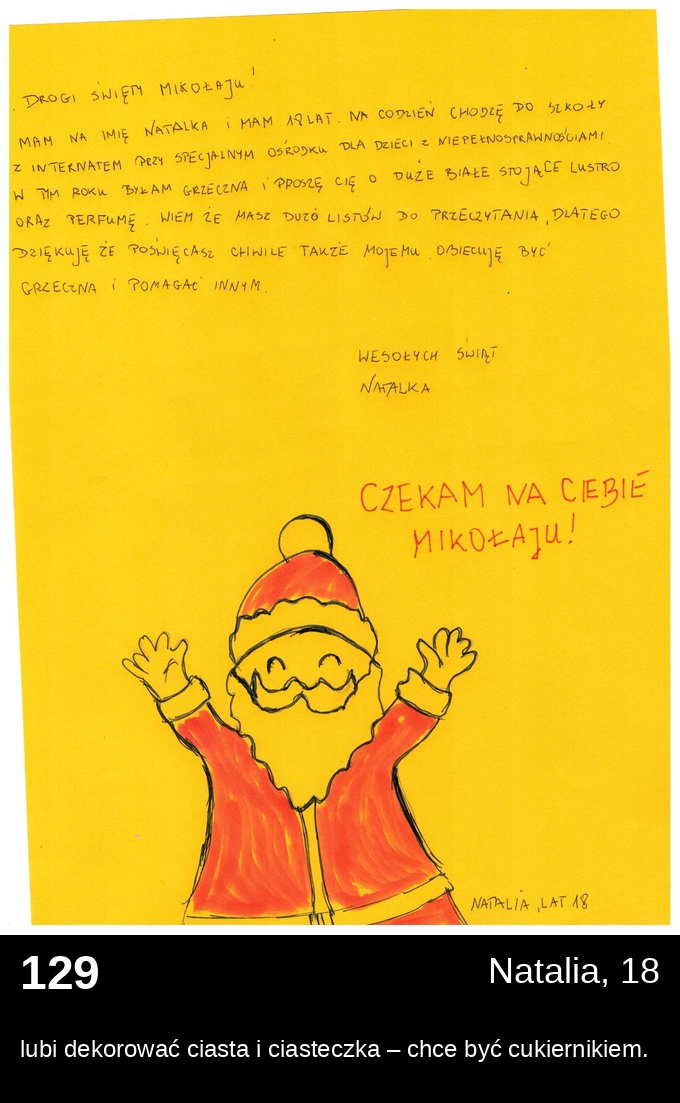 DROGI ŚWIĘTY MIKOŁAJU!
MAM NA IMIĘ NATALKA i MAM 18 LAT. NA CODZIEŃ CHODZĘ DO SZKOŁY
Z INTERNATEM PRZY SPECJALNYM OŚRODKU DLA DZIECI Z NIEPEŁNOSPRAWNOŚCIAMI
W TYM ROKU BYŁAM GRZECZNA i PROSZĘ CIĘ O DUŻE BIAŁE STOJĄCE LUSTRO
ORAZ PERFUMĘ. WIEM ŻE MASZ DUŻO LISTÓW DO PRZECZYTANIA, DLATEGO
DZIĘKUJĘ ŻE POŚWIĘCASZ CHWILE TAKŻE MOJEMU. OBIECUJĘ BYĆ
GRZECZNA i POMAGAĆ INNYM.
WESOŁYCH ŚWIĄT
NATALKA
CZEKAM NA CIEBIE
MIKOŁAJU!
NATALIA, LAT 18
129
Natalia, 18
lubi dekorować ciasta i ciasteczka – chce być cukiernikiem.